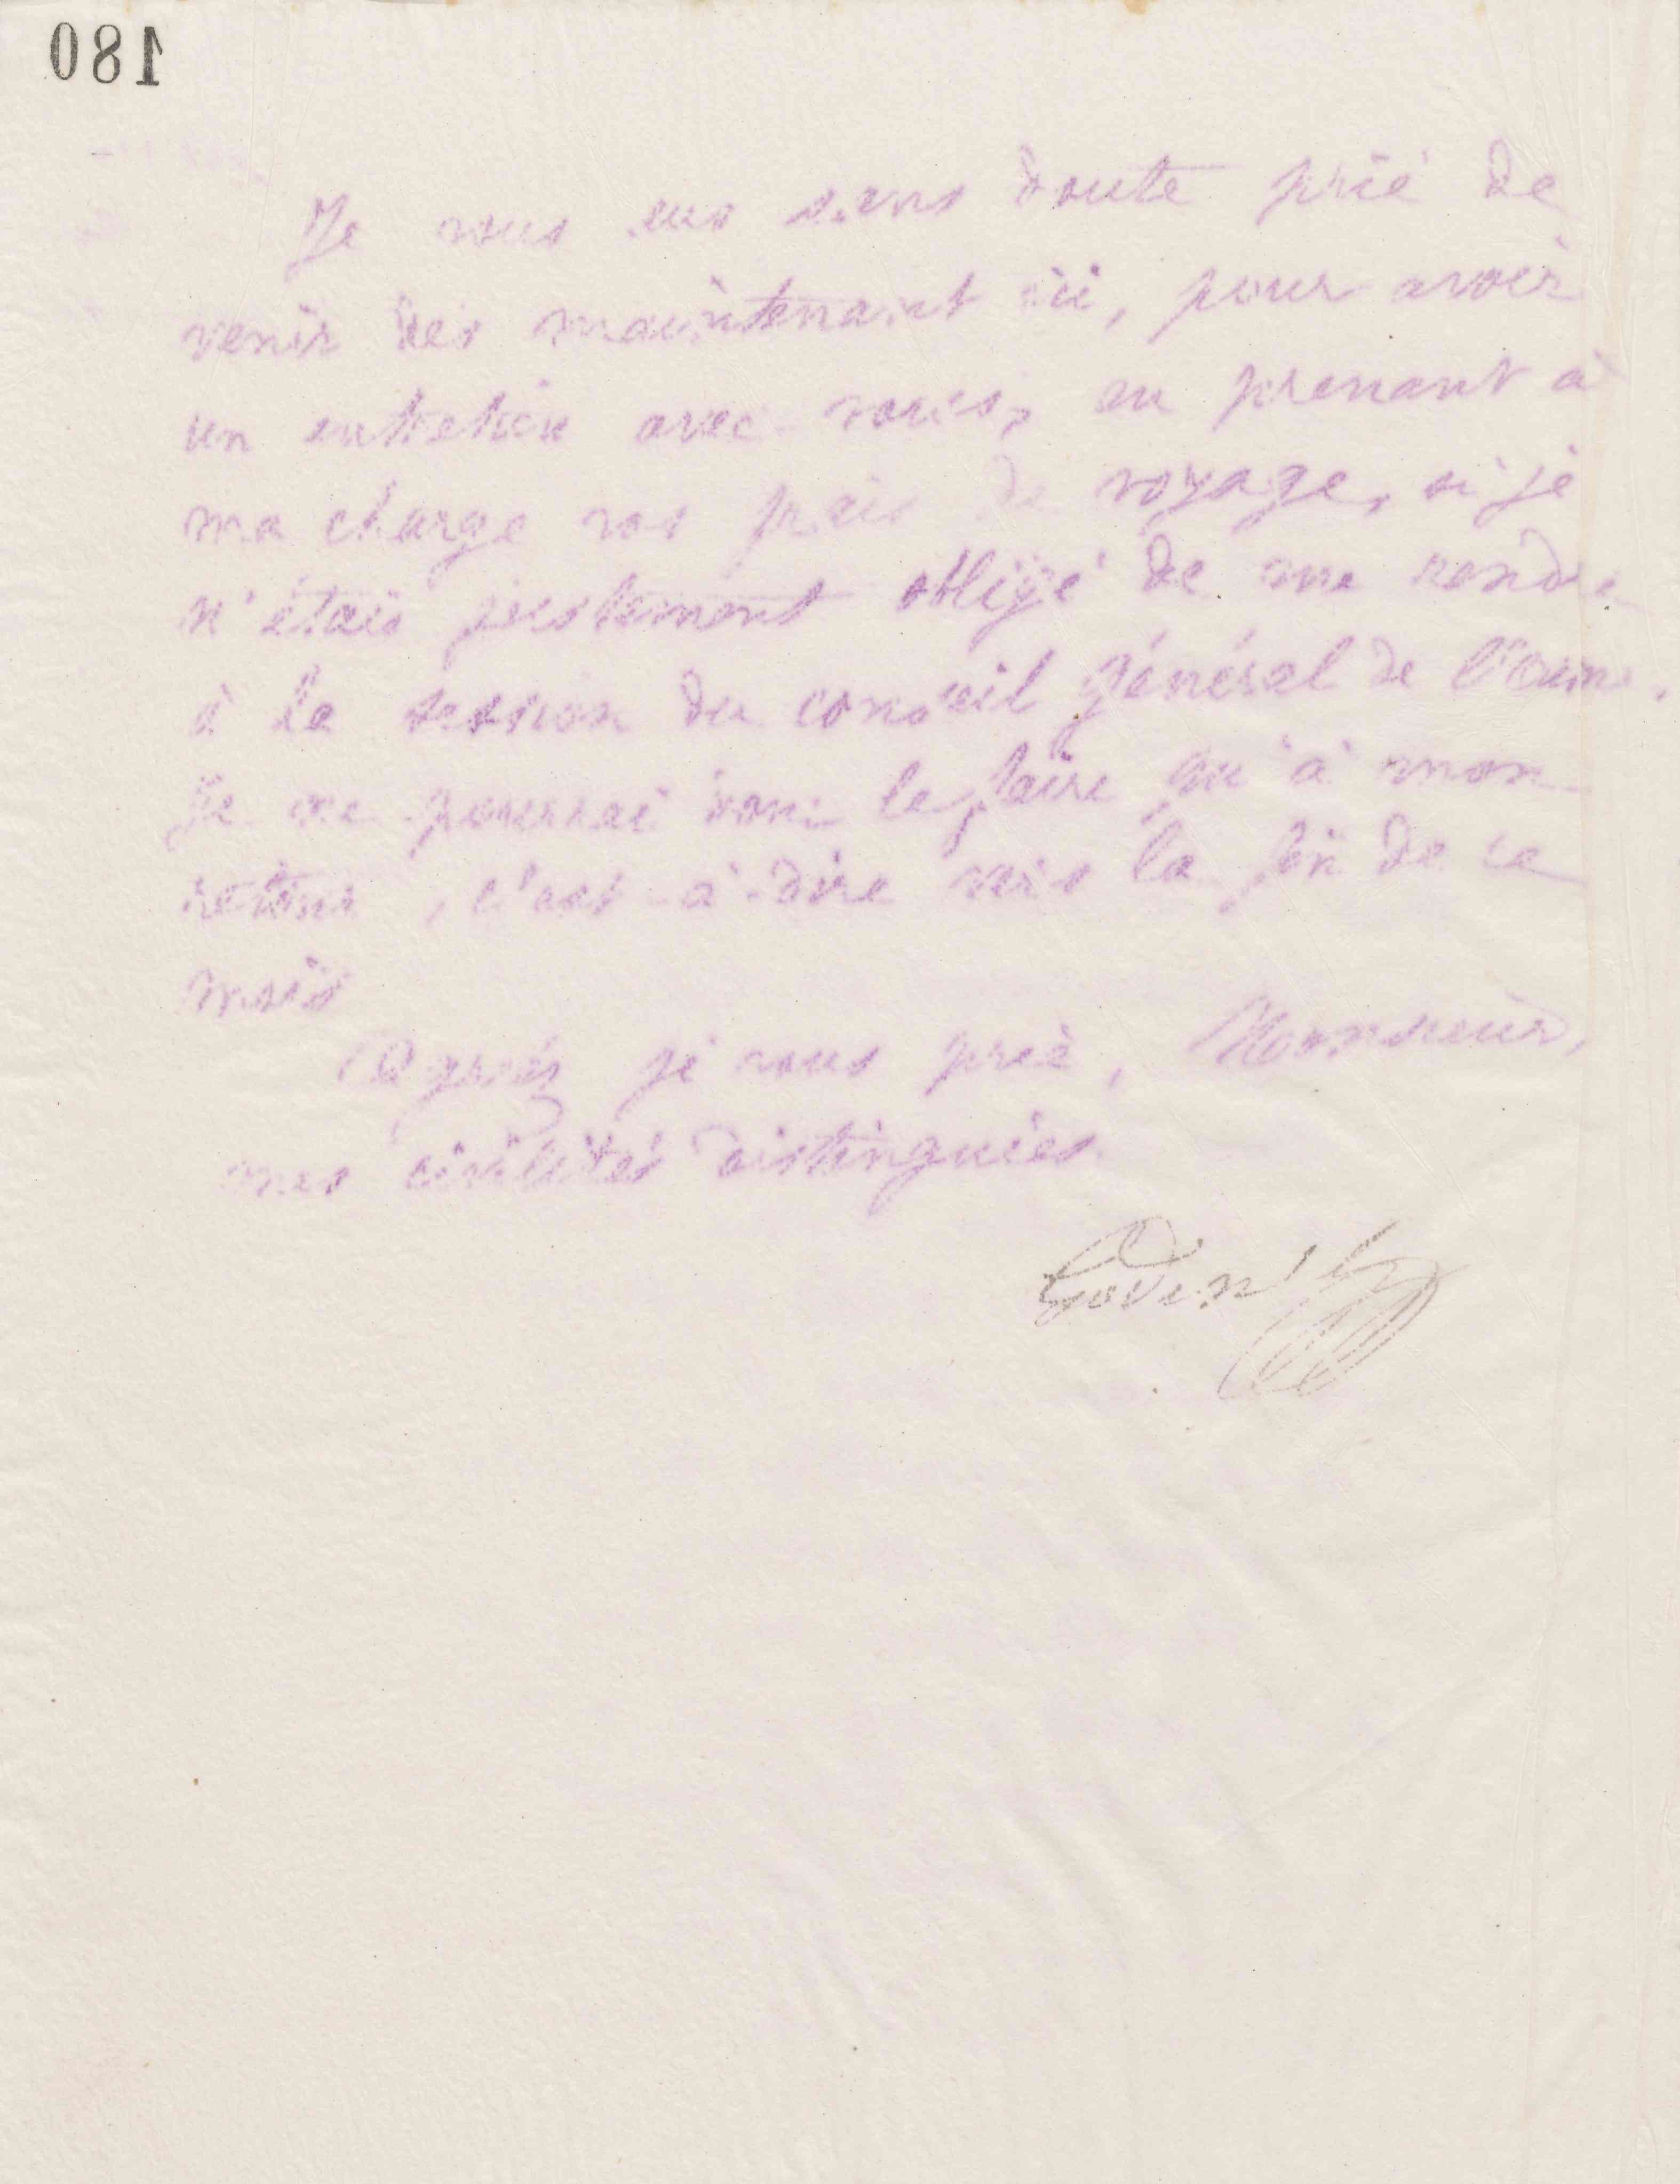 180
Je vous eus sans doute prié de
venir dès maintenant ici, pour avoir
un entretien avec vous, en prenant à
ma charge vos frais de voyage, si je
n'étais justement obligé de me rendre
à la session du conseil général de l'Aisne.
Je ne pourrai donc le faire qu'à mon
retour, c'est-à-dire vers la fin de ce
mois
Agréez je vous prie, Monsieur,
mes civilités distinguées.
Godin